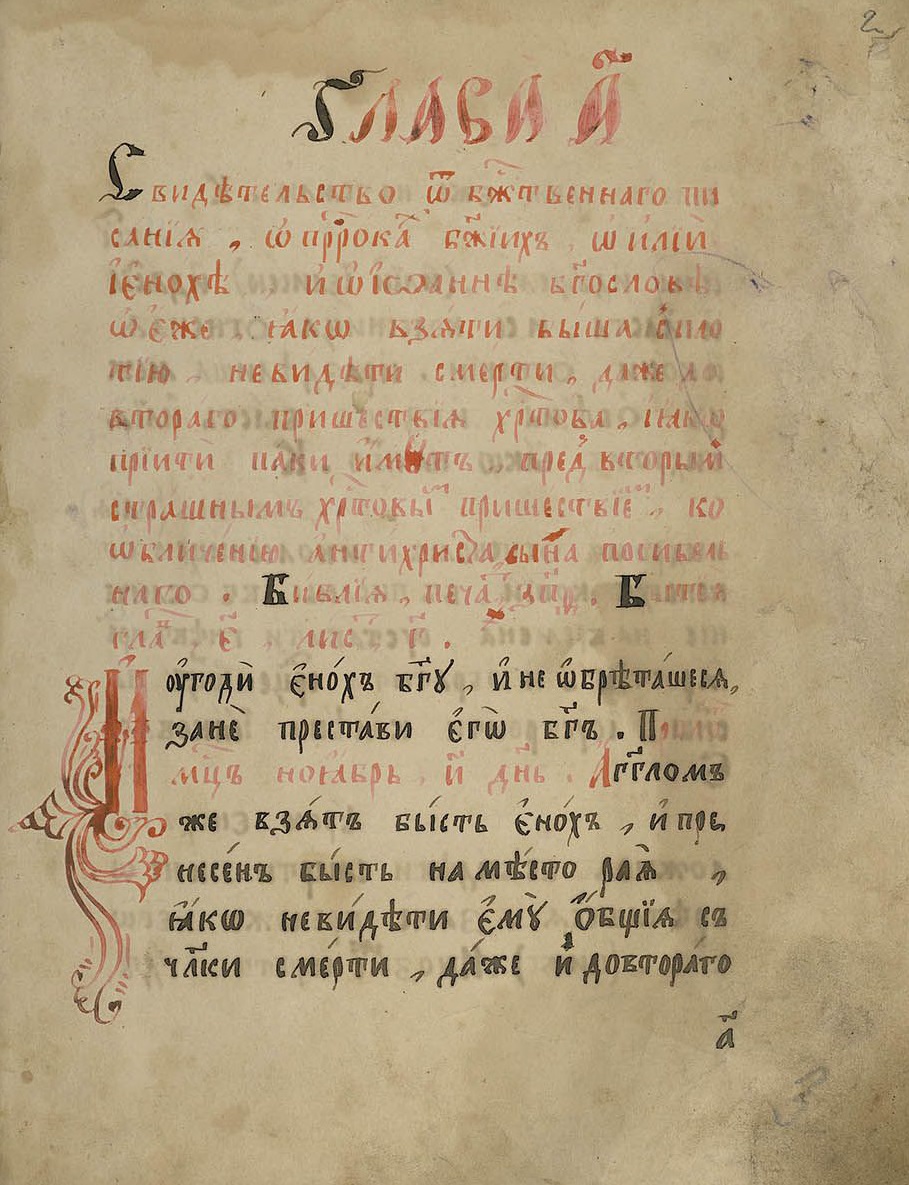 2
Глава а҃
Свидѣтельство ѿ бж҃твеннаго пи
санїѧ, ѡ прⷪ҇рока бж҃їихъ ѡ илїи
їєнохѣ, и ѡ їѡаннѣ бг҃ословѣ
ѡ єже ꙗкѡ взѧти быша
невидѣти смерти, даже до
втораго пришествїѧ хрⷭ҇това, ꙗкѡ
прїити паки имѹтъ, пред вторым
страшнымъ хрⷭ҇товы пришествїе, ко
ѡбличенїю антихриста сына погибель
наго. Библїѧ, печа
гла҃ є҃, лис҃ г҃.
И ѹгоди́ є҆но́хъ бг҃ꙋ, и҆ не ѡ҆брѣта́шесѧ,
занѐ преста́ви є҆гѡ̀ бг҃ъ. П
мц҃ъ ноꙗбрь, и҃ дн҃ь. Аг҃гломъ
же взѧ́тъ бы́сть є҆но́хъ, и҆ пре
несе́нъ бы́сть на мѣ́сто раѧ̀,
ꙗ҆́кѡ неви́дѣти є҆мꙋ̀ ѻ҆́бщїѧ съ
чл҃ки сме́рти, да́же и҆ довтора́го
а҃